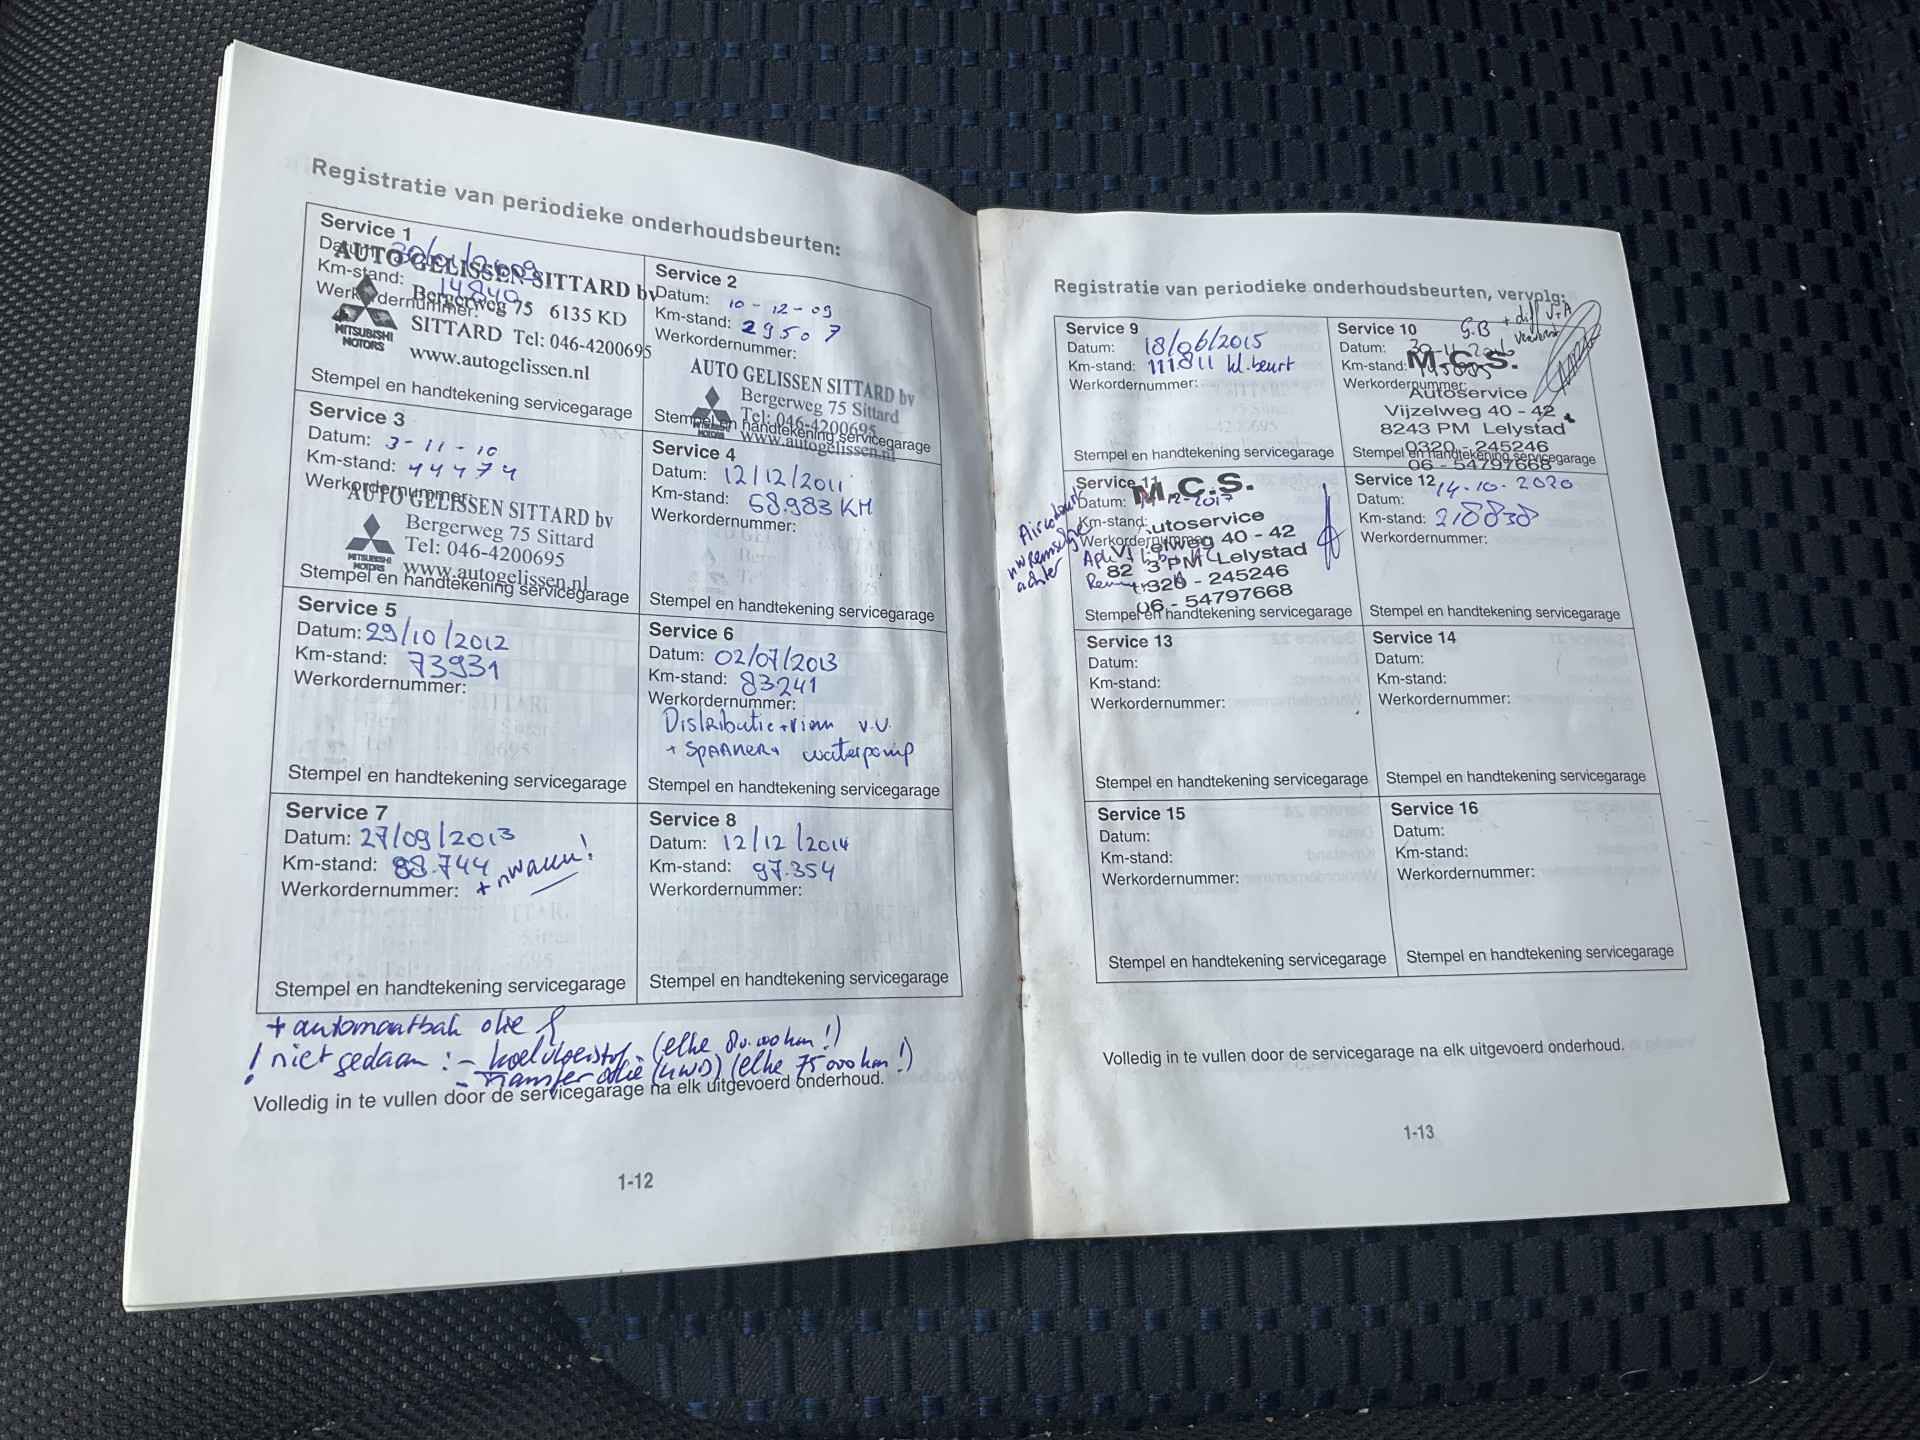 Registratie van periodieke onderhoudsbeurten:
Service 1
Datum:
Km-stand: 14840
Werkordernummer:
AUTO GELISSEN SITTARD bv
Bergerweg 75 6135 KD
SITTARD Tel: 046-4200695
MITSUBISHI
MOTORS
www.autogelissen.nl
Stempel en handtekening servicegarage
Service 2
Datum: 10-12-09
Km-stand: 29507
Werkordernummer:
AUTO GELISSEN SITTARD bv
Bergerweg 75 Sittard
Tel: 046-4200695
www.autogelissen.nl
Stempel en handtekening servicegarage
Service 3
Datum: 3-11-10
Km-stand: 44474
Werkordernummer:
AUTO GELISSEN SITTARD bv
Bergerweg 75 Sittard
Tel: 046-4200695
MITSUBISHI
MOTORS
www.autogelissen.nl
Stempel en handtekening servicegarage
Service 4
Datum: 12/12/2011
Km-stand: 58.983 KM
Werkordernummer:
Stempel en handtekening servicegarage
Service 5
Datum: 29/10/2012
Km-stand: 73931
Werkordernummer:
Stempel en handtekening servicegarage
Service 6
Datum: 02/07/2013
Km-stand: 83241
Werkordernummer:
Distributie+riem v.v.
+ SPANNER+ waterpomp
Stempel en handtekening servicegarage
Service 7
Datum: 27/09/2013
Km-stand: 88.744
Werkordernummer:
Stempel en handtekening servicegarage
Service 8
Datum: 12/12/2014
Km-stand: 97.354
Werkordernummer:
Stempel en handtekening servicegarage
+ automaatbak olie
! niet gedaan: - koelvloeistof (elke 80.000 km!)
- transfer olie (4WD) (elke 75000 km!)
Volledig in te vullen door de servicegarage na elk uitgevoerd onderhoud.
1-12
Registratie van periodieke onderhoudsbeurten, vervolg:
Service 9
Datum: 18/06/2015
Km-stand: 111811 kl.beurt
Werkordernummer:
Stempel en handtekening servicegarage
Service 10 G.B + diff V+A
Datum:
Km-stand:
Werkordernummer:
M.C.S.
Autoservice
Vijzelweg 40 - 42
8243 PM Lelystad
0320 - 245246
06 - 54797668
Stempel en handtekening servicegarage
Service 11
Datum: 12-2017
Km-stand:
Werkordernummer:
M.C.S.
Autoservice
Vijzelweg 40 - 42
8243 PM Lelystad
0320 - 245246
06 - 54797668
achter
Stempel en handtekening servicegarage
Service 12
Datum: 14-10-2020
Km-stand: 218838
Werkordernummer:
Stempel en handtekening servicegarage
Service 13
Datum:
Km-stand:
Werkordernummer:
Stempel en handtekening servicegarage
Service 14
Datum:
Km-stand:
Werkordernummer:
Stempel en handtekening servicegarage
Service 15
Datum:
Km-stand:
Werkordernummer:
Stempel en handtekening servicegarage
Service 16
Datum:
Km-stand:
Werkordernummer:
Stempel en handtekening servicegarage
Volledig in te vullen door de servicegarage na elk uitgevoerd onderhoud.
1-13